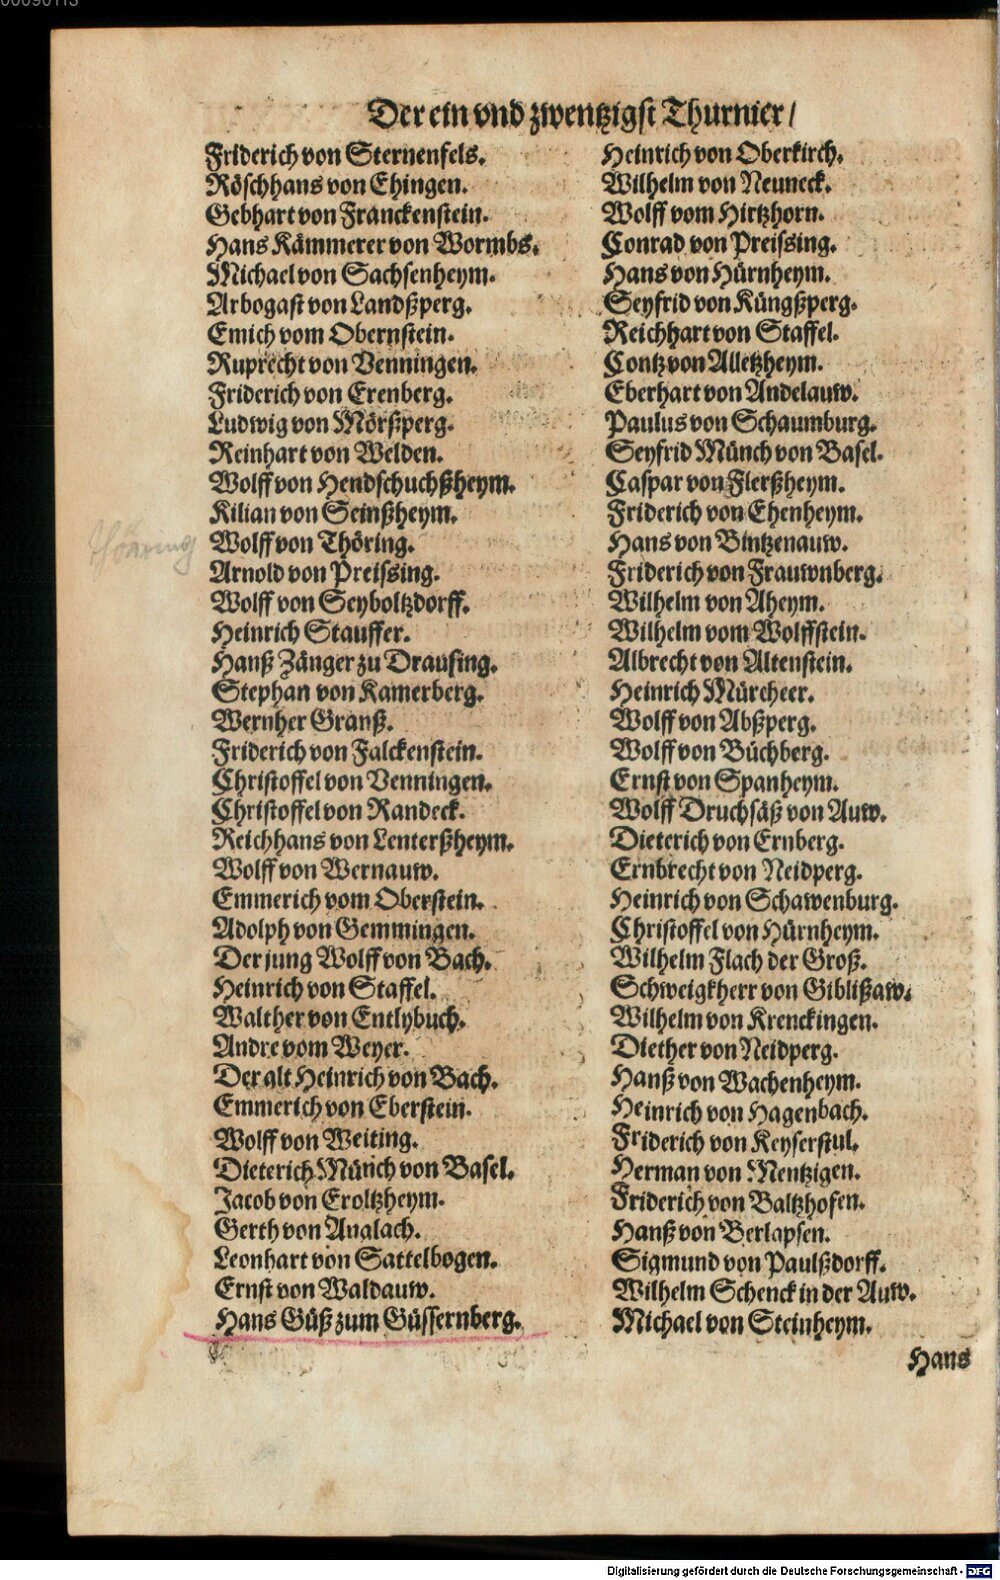 Der ein vnd zwentzigst Thurnier/
Friderich von Sternenfels.
Röschhans von Ehingen.
Gebhart von Franckenstein.
Hans Kämmerer von Wormbs.
Michael von Sachsenheym.
Arbogast von Landßperg.
Emich vom Obernstein.
Ruprecht von Venningen.
Friderich von Erenberg.
Ludwig von Mörßperg.
Reinhart von Welden.
Wolff von Hendschuchßheym.
Kilian von Seinßheym.
Wolff von Thöring.
Arnold von Preissing.
Wolff von Seyboltzdorff.
Heinrich Stauffer.
Hanß Zänger zu Drausing.
Stephan von Kamerberg.
Wernher Granß.
Friderich von Falckenstein.
Christoffel von Venningen.
Christoffel von Randeck.
Reichhans von Lenterßheym.
Wolff von Wernauw.
Emmerich vom Oberstein.
Adolph von Gemmingen.
Der jung Wolff von Bach.
Heinrich von Staffel.
Walther von Entlybuch.
Andre vom Weyer.
Der alt Heinrich von Bach.
Emmerich von Eberstein.
Wolff von Weiting.
Dieterich Münch von Basel.
Jacob von Eroltzheym.
Gerth von Analach.
Leonhart von Sattelbogen.
Ernst von Waldauw.
Hans Güß zum Güssernberg.
Heinrich von Oberkirch.
Wilhelm von Neuneck.
Wolff vom Hirtzhorn.
Conrad von Preissing.
Hans von Hürnheym.
Seyfrid von Küngßperg.
Reichhart von Staffel.
Contz von Alletzheym.
Eberhart von Andelauw.
Paulus von Schaumburg.
Seyfrid Münch von Basel.
Caspar von Flerßheym.
Friderich von Ehenheym.
Hans von Bintzenauw.
Friderich von Frauwnberg.
Wilhelm von Aheym.
Wilhelm vom Wolffstein.
Albrecht von Altenstein.
Heinrich Mürcheer.
Wolff von Abßperg.
Wolff von Büchberg.
Ernst von Spanheym.
Wolff Druchsäß von Auw.
Dieterich von Ernberg.
Ernbrecht von Neidperg.
Heinrich von Schawenburg.
Christoffel von Hürnheym.
Wilhelm Flach der Groß.
Schweigkherr von Giblißaw.
Wilhelm von Krenckingen.
Diether von Neidperg.
Hanß von Wachenheym.
Heinrich von Hagenbach.
Friderich von Keyserstul.
Herman von Mentzigen.
Friderich von Baltzhofen.
Hanß von Berlapsen.
Sigmund von Paulßdorff.
Wilhelm Schenck in der Auw.
Michael von Steinheym.
Hans
Digitalisierung gefördert durch die Deutsche Forschungsgemeinschaft - DFG